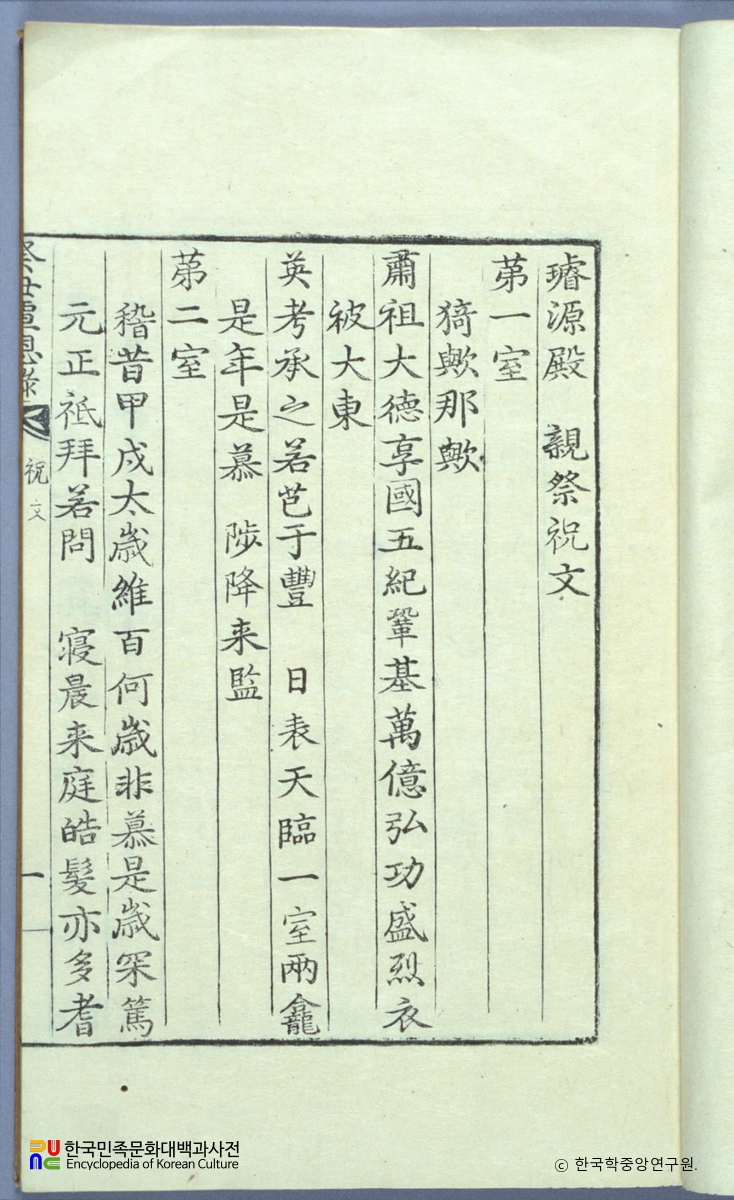 璿源殿 親祭祝文
第一室
猗歟那歟
肅祖大德享國五紀鞏基萬億弘功盛烈衣
被大東
英考承之若芑于豐 日表天臨一室兩龕
是年是慕 陟降来監
第二室
稽昔甲戌太歲維百何歲非慕是歲罙篤
元正祗拜若問 寢晨来庭皓髮亦多耆
祝文
一
한국민족문화대백과사전
Encyclopedia of Korean Culture
ⓒ 한국학중앙연구원.